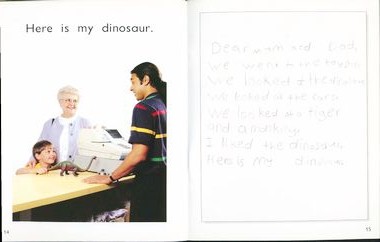 Here is my dinosaur.
14
Dear mom and Dad,
we went to the
we looked
we looked at the
we looked at a tiger
and a monkey.
I liked the dinosaurs
Here is my dinosaur
15